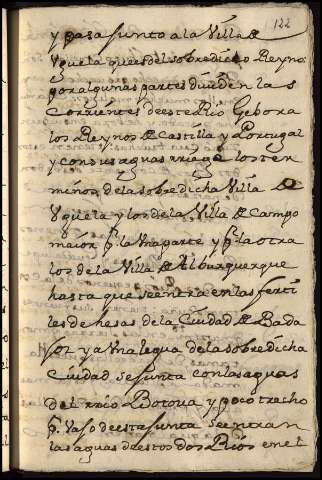 122
y pasa junto a la Villa de
Vguela que es del sobredicho Reyno
por algunas partes diuiden la s
Corrientes de este Rio Gebora
los Reynos de Castilla y Portugal
y con sus aguas riega los ter
minos de la sobredicha Villa de
Vguela y los de la Villa de Campo
maior pr. la vna parte y pr. la otra
los de la Villa de Alburquerque
hasta que se entra en las ferti
les dehesas de la Ciudad de Bada
joz y a vna legua de la sobredicha
Ciudad se junta con las aguas
del rrio Botoua y poco trecho
pr. vaso de esta junta se entran
las aguas de estos dos Rios en el